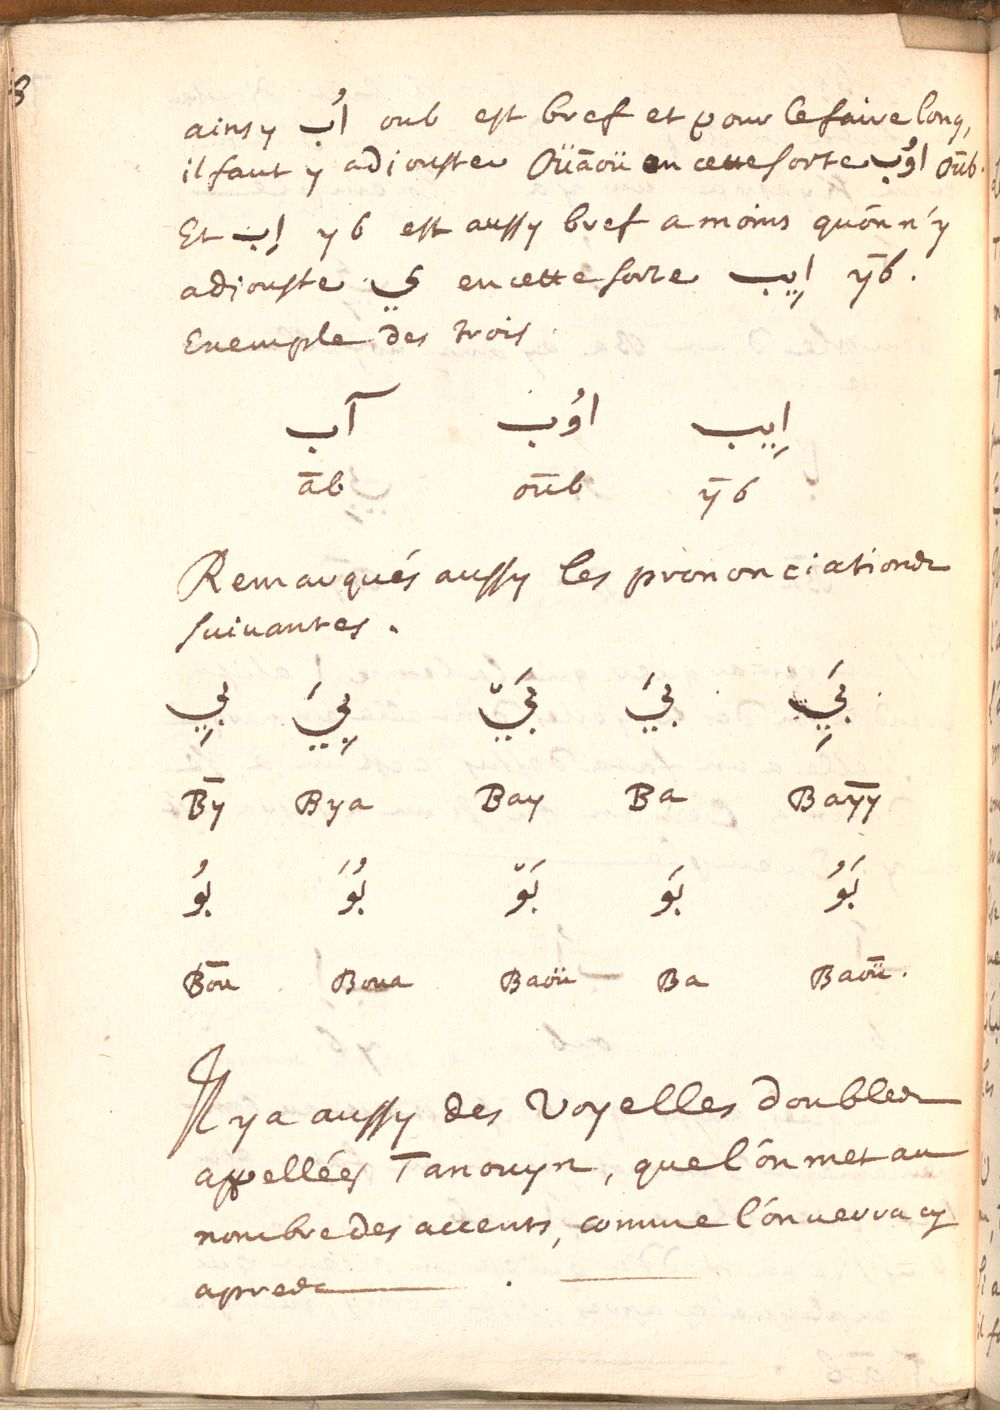 8
ainsy اُب oub est bref et pour le faire long,
il faut y adiouster Oüāoü en cette sorte اوُب oūb.
Et اِب yb est aussy bref a moins qu'on n'y
adiouste ي en cette sorte اِيب ȳb.
Exemple des trois
آب اوُب اِيب
āb oūb ȳb
Remarqués aussy les prononciations
suivantes.
بيِ بِيَ بَيّ بَيَ بَيِ
Bȳ Bya Bay Ba Baȳy
بوُ بُوَ بَوّ بَوَ بَوُ
Boū Boua Baoü Ba Baoū.
Il y a aussy des Voyelles doubles
appellées Tanouyn, que l'on met au
nombre des accents, comme l'on verra cy
apres .